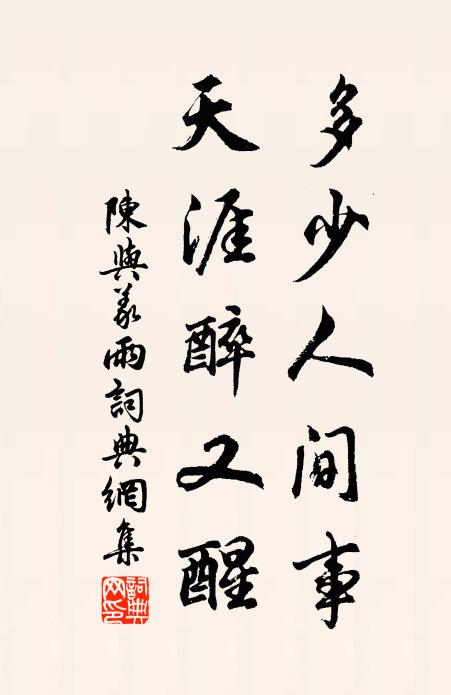 多少人间事
天涯醉又醒
陳與義雨詞典網集
詞典网印